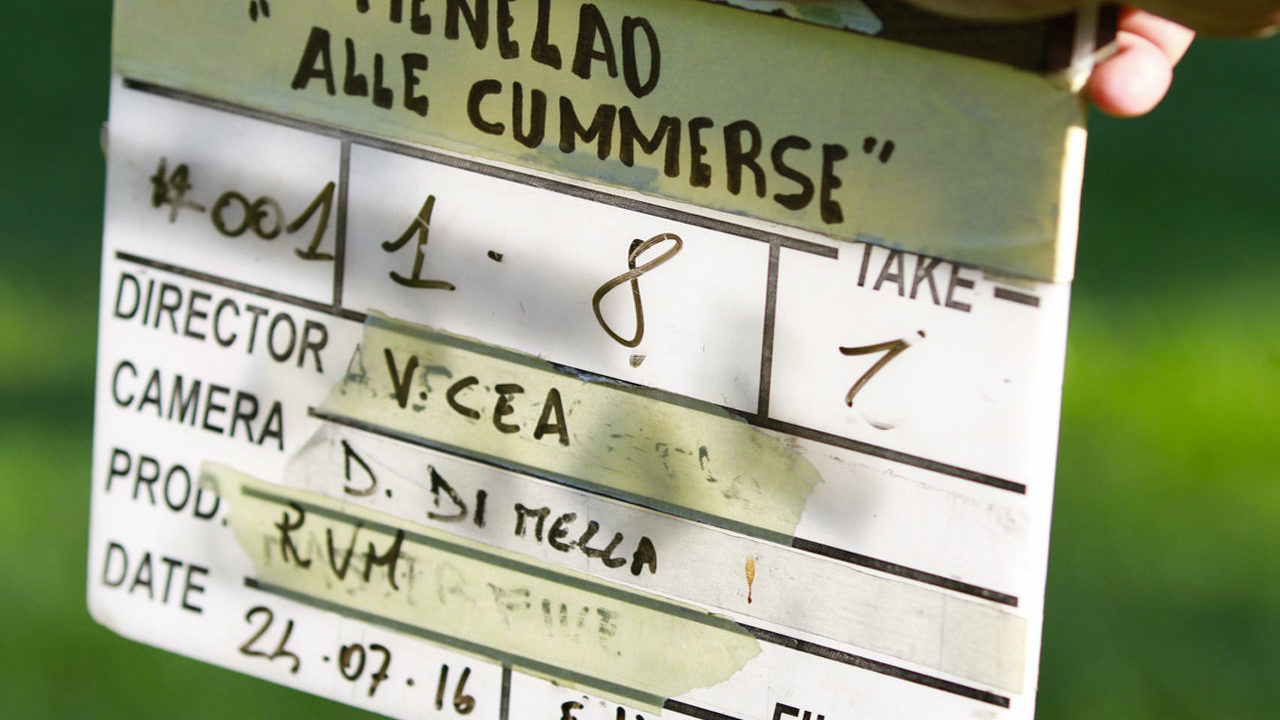 " MENELAO
ALLE CUMMERSE"
#001 1. 8
TAKE
1
DIRECTOR V. CEA
CAMERA D. DI MELLA
PROD. RVM
DATE 24.07.16